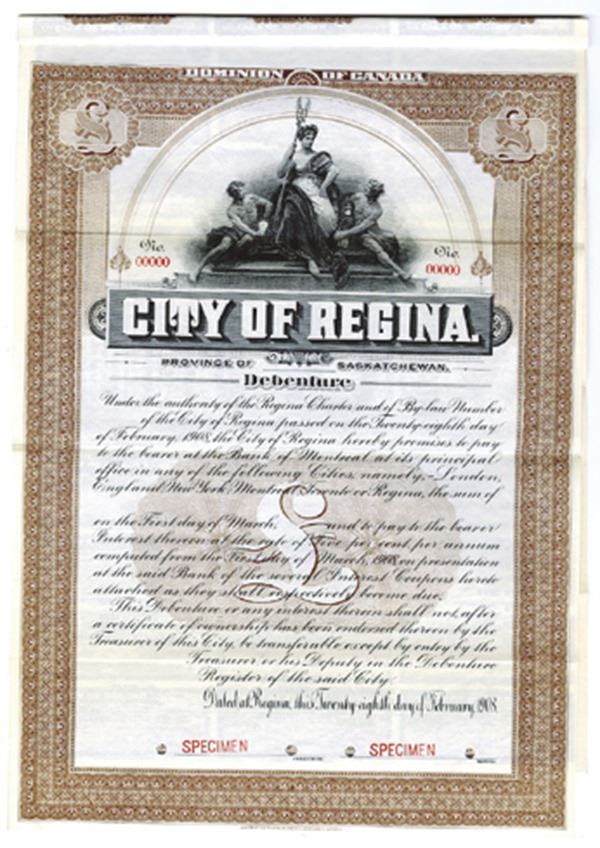 DOMINION OF CANADA
No. No.
00000 00000
CITY OF REGINA.
PROVINCE OF SASKATCHEWAN.
Debenture
Under the authority of the Regina Charter and of By-law Number
of the City of Regina passed on the Twenty-eighth day
of February, 1908, the City of Regina hereby promises to pay
to the bearer at the Bank of Montreal, at its principal
office in any of the following Cities, namely,- London,
England, New York, Montreal, Toronto or Regina, the sum of
£
on the First day of March, and to pay to the bearer
Interest thereon at the rate of Five per cent. per annum
computed from the First day of March, 1908, on presentation
at the said Bank of the several Interest Coupons hereto
attached as they shall respectively become due.
This Debenture or any interest therein shall not, after
a certificate of ownership has been endorsed thereon by the
Treasurer of this City, be transferable except by entry by the
Treasurer or his Deputy in the Debenture
Register of the said City.
Dated at Regina, this Twenty-eighth day of February, 1908.
SPECIMEN SPECIMEN